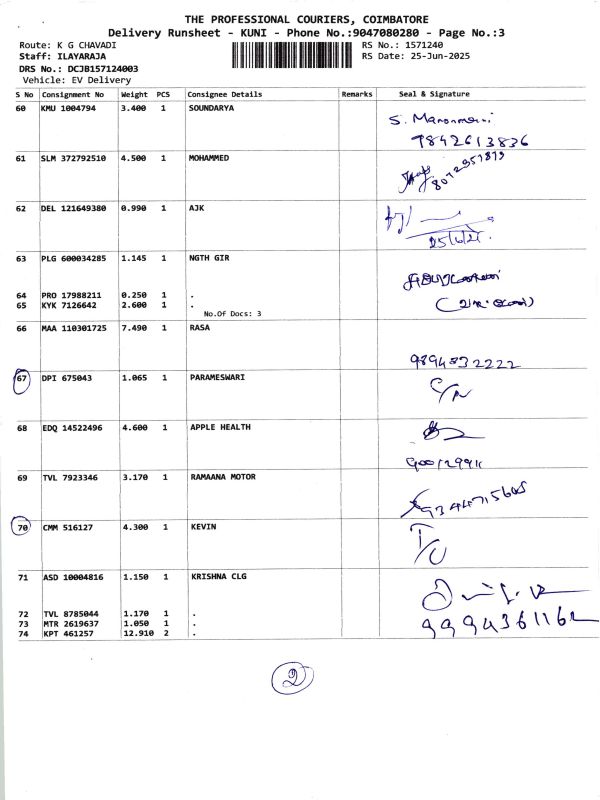 THE PROFESSIONAL COURIERS, COIMBATORE
Delivery Runsheet - KUNI - Phone No.:9047080280 - Page No.:3
Route: K G CHAVADI
RS No.: 1571240
Staff: ILAYARAJA
RS Date: 25-Jun-2025
DRS No.: DCJB157124003
Vehicle: EV Delivery
S No Consignment No Weight PCS Consignee Details Remarks Seal & Signature
60 KMU 1004794 3.400 1 SOUNDARYA
S. Manonmani
9842613836
61 SLM 372792510 4.500 1 MOHAMMED
8072951819
62 DEL 121649380 0.990 1 AJK
25/6/25
63 PLG 600034285 1.145 1 NGTH GIR
64 PRO 17988211 0.250 1 .
65 KYK 7126642 2.600 1 .
No.Of Docs: 3
66 MAA 110301725 7.490 1 RASA
9894832222
67 DPI 675043 1.065 1 PARAMESWARI
C/N
68 EDQ 14522496 4.600 1 APPLE HEALTH
69 TVL 7923346 3.170 1 RAMAANA MOTOR
70 CMM 516127 4.300 1 KEVIN
I/C
71 ASD 10004816 1.150 1 KRISHNA CLG
72 TVL 8785044 1.170 1 .
73 MTR 2619637 1.050 1 .
74 KPT 461257 12.910 2 .
9994361162
2